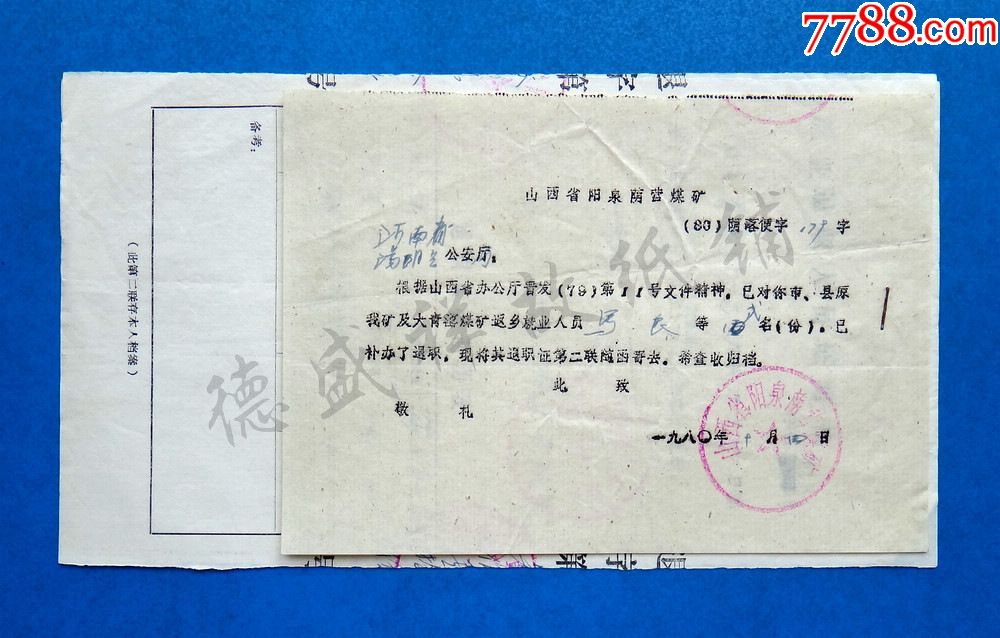 7788.com
退字第 号
备考：
（此第二联存本人档案）
山西省阳泉荫营煤矿
（80）荫落便字 179 字
河南省
公安厅：
根据山西省办公厅晋发（79）第11号文件精神。已对你市、县原
我矿及大青窑煤矿返乡就业人员 等 名（份）。已
补办了退职。现将其退职证第二联随函寄去。希查收归档。
此 致
敬 礼
一九八〇年 9 月 日
山西省阳泉荫营煤矿
德盛祥故纸铺
退字第 号